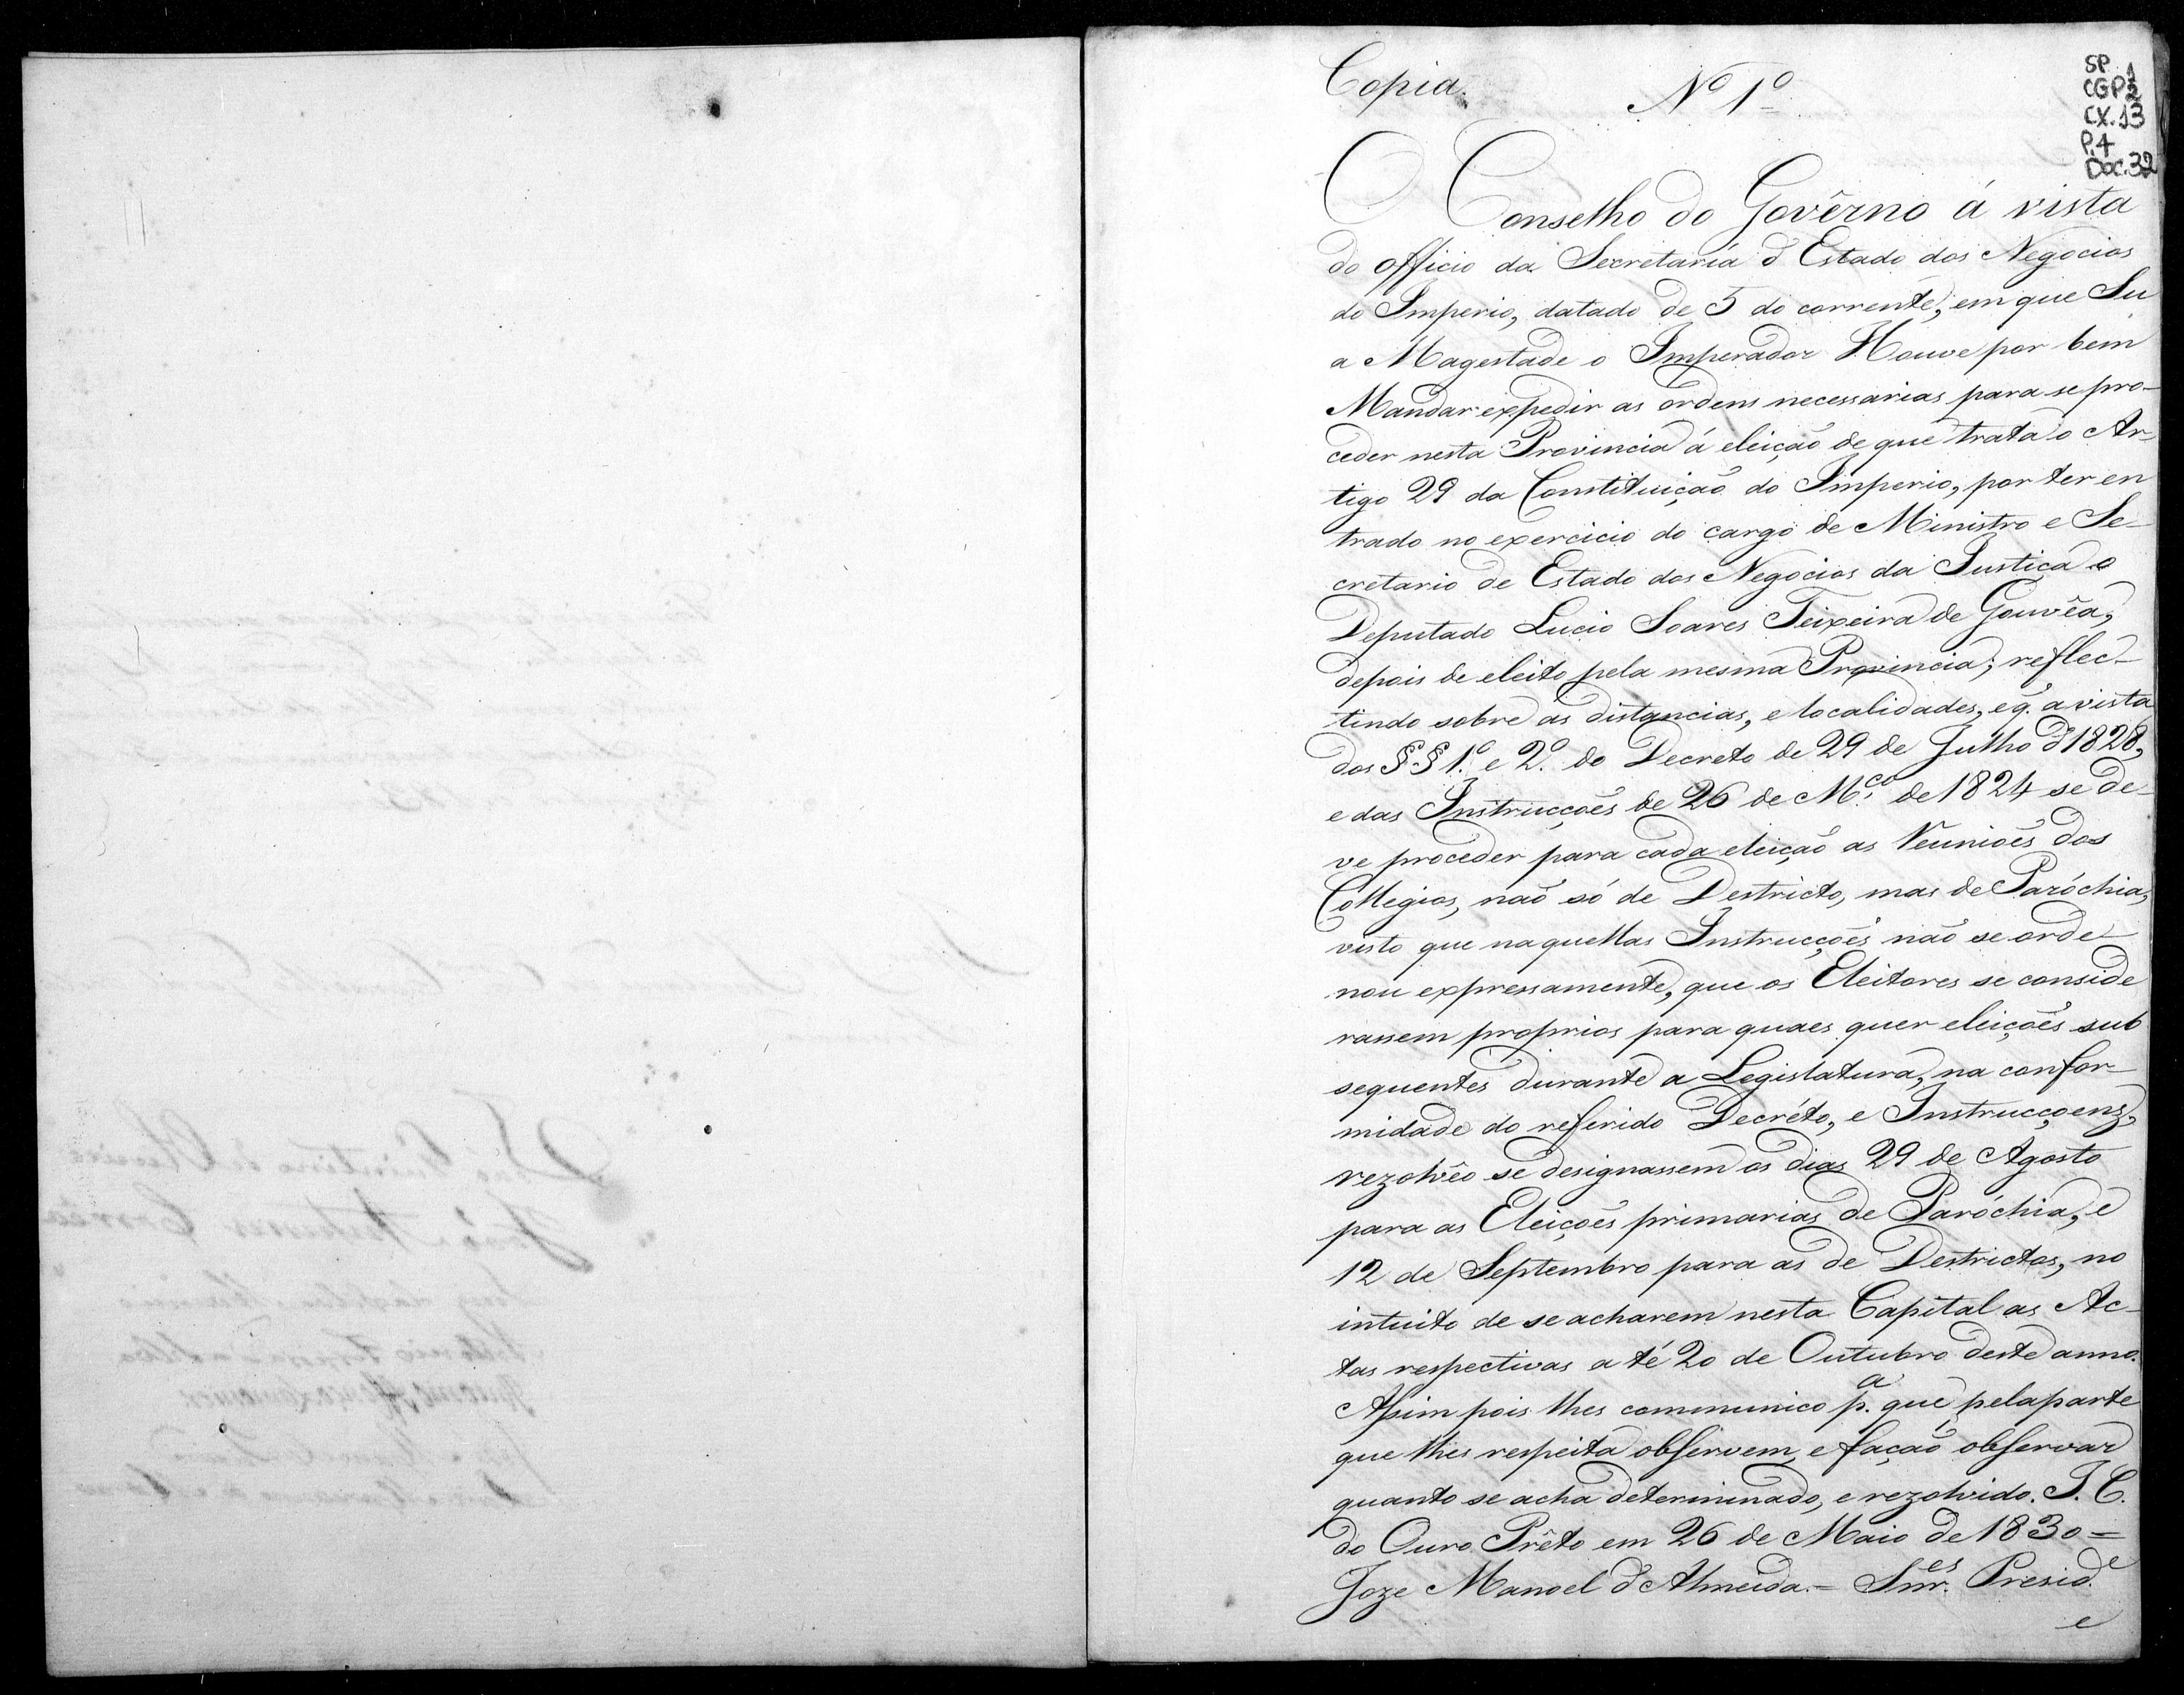 Copia.
Nº 1º
SP
CGP
CX. 13
P. 4
DOC. 32
O Conselho do Govêrno á vista
do officio da Secretaría d'Estado dos Negocios
do Imperio, datado de 5 do corrente, em que Su
a Magestade o Imperador Houve por bem
Mandar expedir as ordens necessarias para se pro-
ceder nesta Provincia á eleição de que trata o Ar-
tigo 29 da Constituição do Imperio, por ter en
trado no exercicio do cargo de Ministro e Se-
cretario de Estado dos Negocios da Justiça o
Deputado Lucio Soares Teixeira de Gouvêa,
depois de eleito pela mesma Provincia; reflec-
tindo sobre as distancias, e localidades, e q. a vista
dos §§ 1.º e 2.º do Decreto de 29 de Julho d'1828,
e das Instrucções de 26 de M.ço de 1824 se de-
ve proceder para cada eleição as Reuniões dos
Collegios, não só de Destricto, mas de Paróchia,
visto que naquellas Instrucções não se orde-
nou expressamente, que os Eleitores se conside
rassem proprios para quaes quer eleições sub
sequentes durante a Legislatura, na confor-
midade do referido Decréto, e Instrucçoens,
rezolvêo se designassem os dias 29 de Agosto
para as Eleições primarias de Paróchia, e
12 de Septembro para as de Destrictos, no
intuito de se acharem nesta Capital as Ac-
tas respectivas a té 20 de Outubro deste anno.
Assim pois lhes communico p.a que pela parte
que lhes respeita observem, e fação observar
quanto se acha determinado, e rezolvido. I. C.
do Ouro Prêto em 26 de Maio de 1830 =
Joze Manoel d'Almeida. = Snr.es Presid.e
e